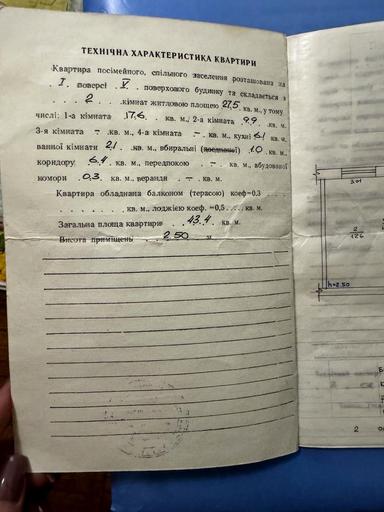 ТЕХНІЧНА ХАРАКТЕРИСТИКА КВАРТИРИ
Квартира посімейного, спільного заселення розташована на
I поверсі V поверхового будинку та складається з
2 кімнат житловою площею 27,5 кв. м, у тому
числі: 1-а кімната 17,6 кв. м., 2-а кімната 9,9 кв. м.
3-я кімната — кв. м., 4-а кімната — кв. м., кухні 6,1 кв. м.
ванної кімнати 2,1 кв. м., вбиральні (поєднаної) 1,0 кв. м.,
коридору 6,4 кв. м., передпокою — кв. м., вбудованої
комори 0,3 кв. м., веранди — кв. м.
Квартира обладнана балконом (терасою) коеф=0.3
кв. м., лоджією коеф. =0,5 кв. м.
Загальна площа квартири 43,4 кв. м.
Висота приміщень 2,50 м
3.01
2
h=2.50
2